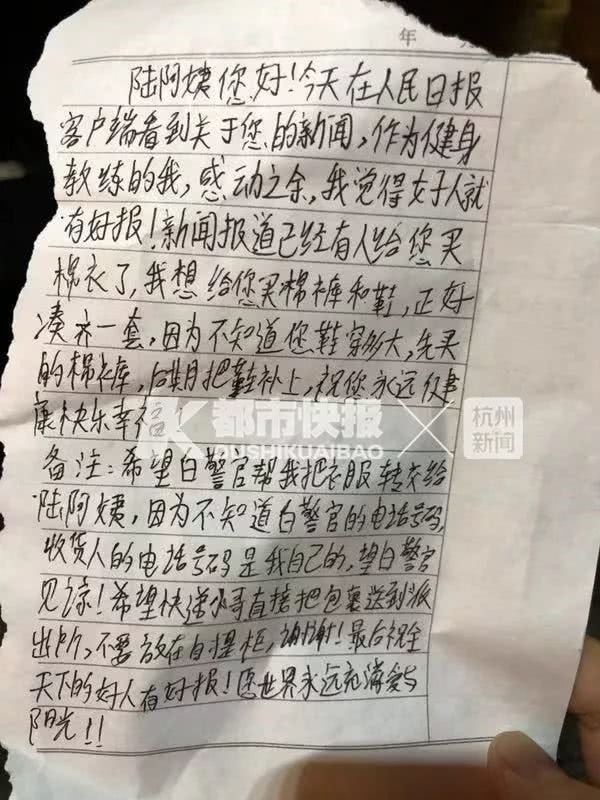 年 月
陆阿姨您好！今天在人民日报
客户端看到关于您的新闻，作为健身
教练的我，感动之余，我觉得好人就
有好报！新闻报道已经有人给您买
棉衣了，我想给您买棉裤和鞋，正好
凑齐一套，因为不知道您鞋穿多大，先买
的棉裤，后期把鞋补上，祝您永远健
康快乐幸福
都市快报
DUSHIKUAIBAO
杭州新闻
备注：希望白警官帮我把衣服转交给
陆阿姨，因为不知道白警官的电话号码，
收货人的电话号码是我自己的，望白警官
见谅！希望快递小哥直接把包裹送到派
出所，不要放在自提柜，谢谢！最后祝全
天下的好人有好报！愿世界永远充满爱与
阳光！！